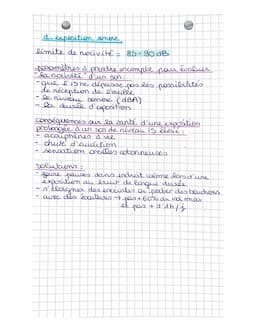 1- exposition sonore
limite de nocivité = 85-90 dB
paramètres à prendre en compte pour évaluer
la nocivité d'un son :
- que l'IS ne dépasse pas les possibilités
de réception de l'oreille
- le niveau sonore (dBA)
- la durée d'exposition
conséquences sur la santé d'une exposition
prolongée à un son de niveau IS élevé :
- acouphènes à vie
- chute d'audition
- sensation oreilles cotonneuses
solutions :
- faire pauses dans endroit calme lors d'une
exposition au bruit de longue durée
- s'éloigner des enceintes ou porter des bouchons
- avec des écouteurs → pas + 60% du vol max
et pas + d'1h/j